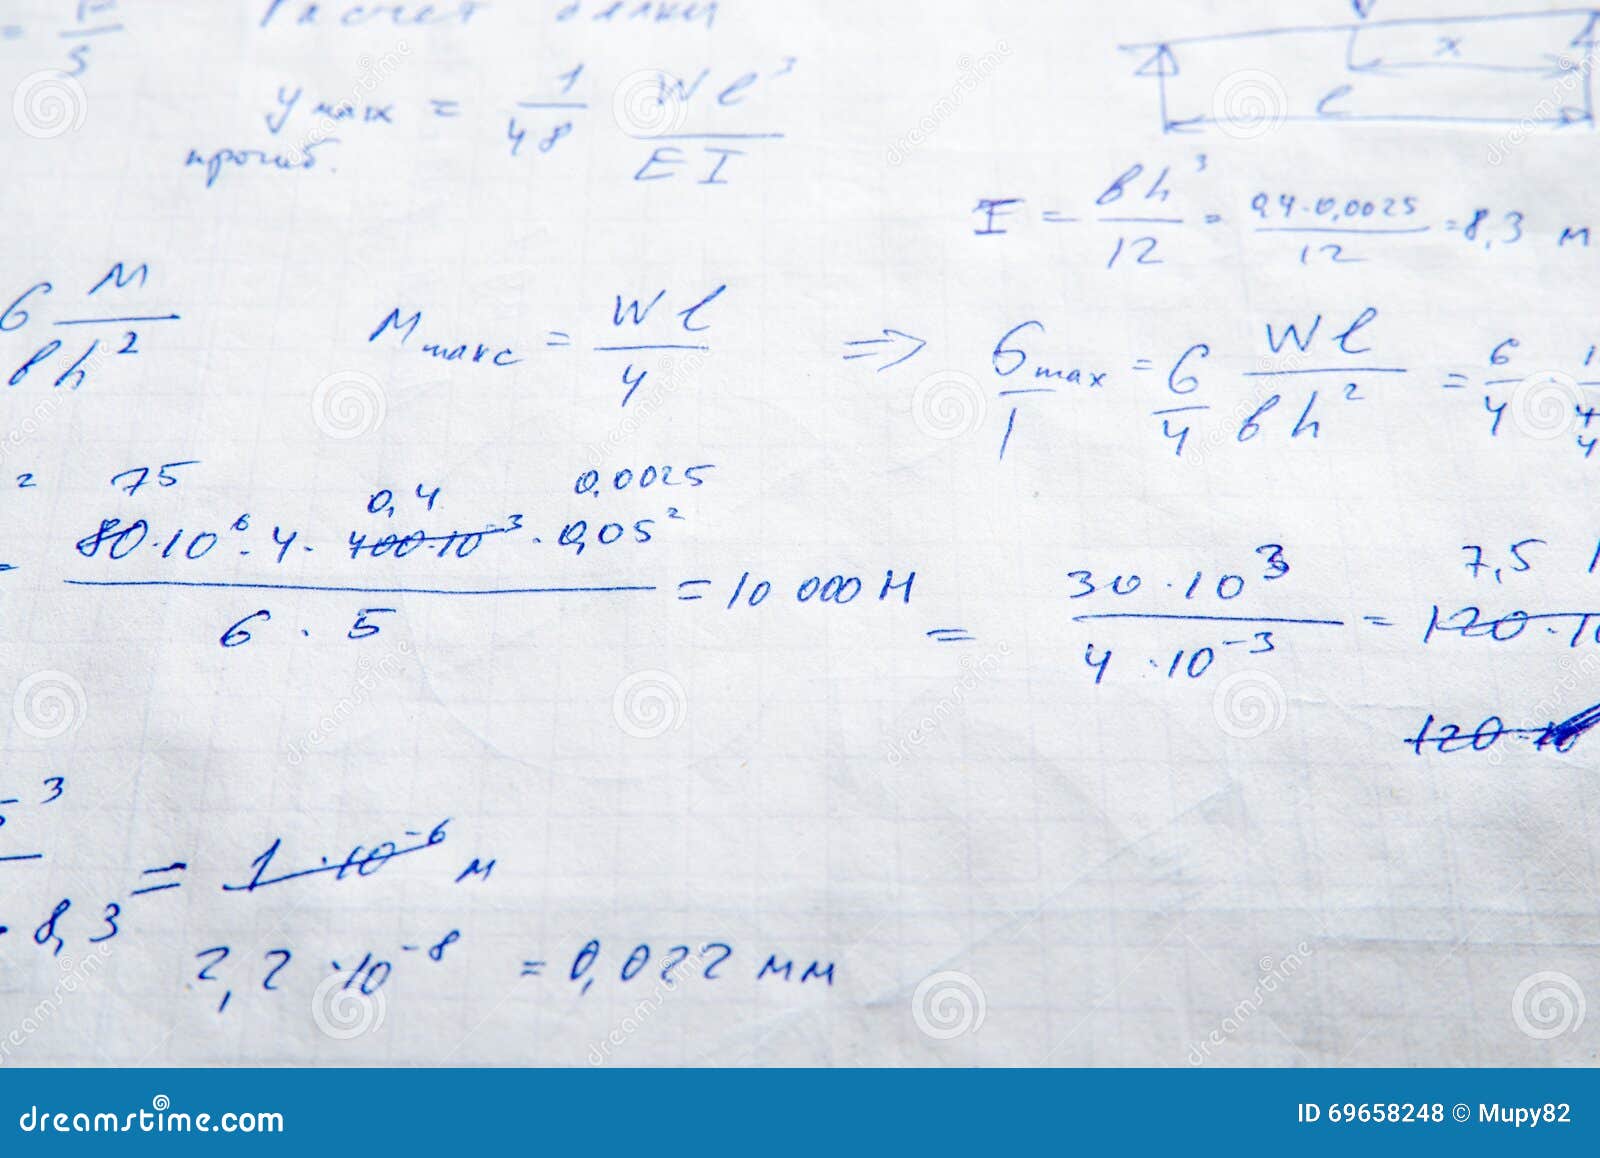 Расчет балки
y max = 1/48 Wl³/EI
прогиб.
x
l
I = bh³/12 = 0,4·0,0025/12 = 8,3 м
6 M/bh²
M макс = Wl/4 ⇒ σ max/1 = 6/4 Wl/bh² = 6/4 ·
75 0,4 0,0025
= 80·10⁶·4·400·10⁻³·0,05²/6·5 = 10 000 Н
= 30·10³/4·10⁻³ = 7,5
120·1
120·10
³
8,3 = 1·10⁻⁶ м
2,2·10⁻⁸ = 0,022 мм
dreamstime.com
ID 69658248 © Mupy82